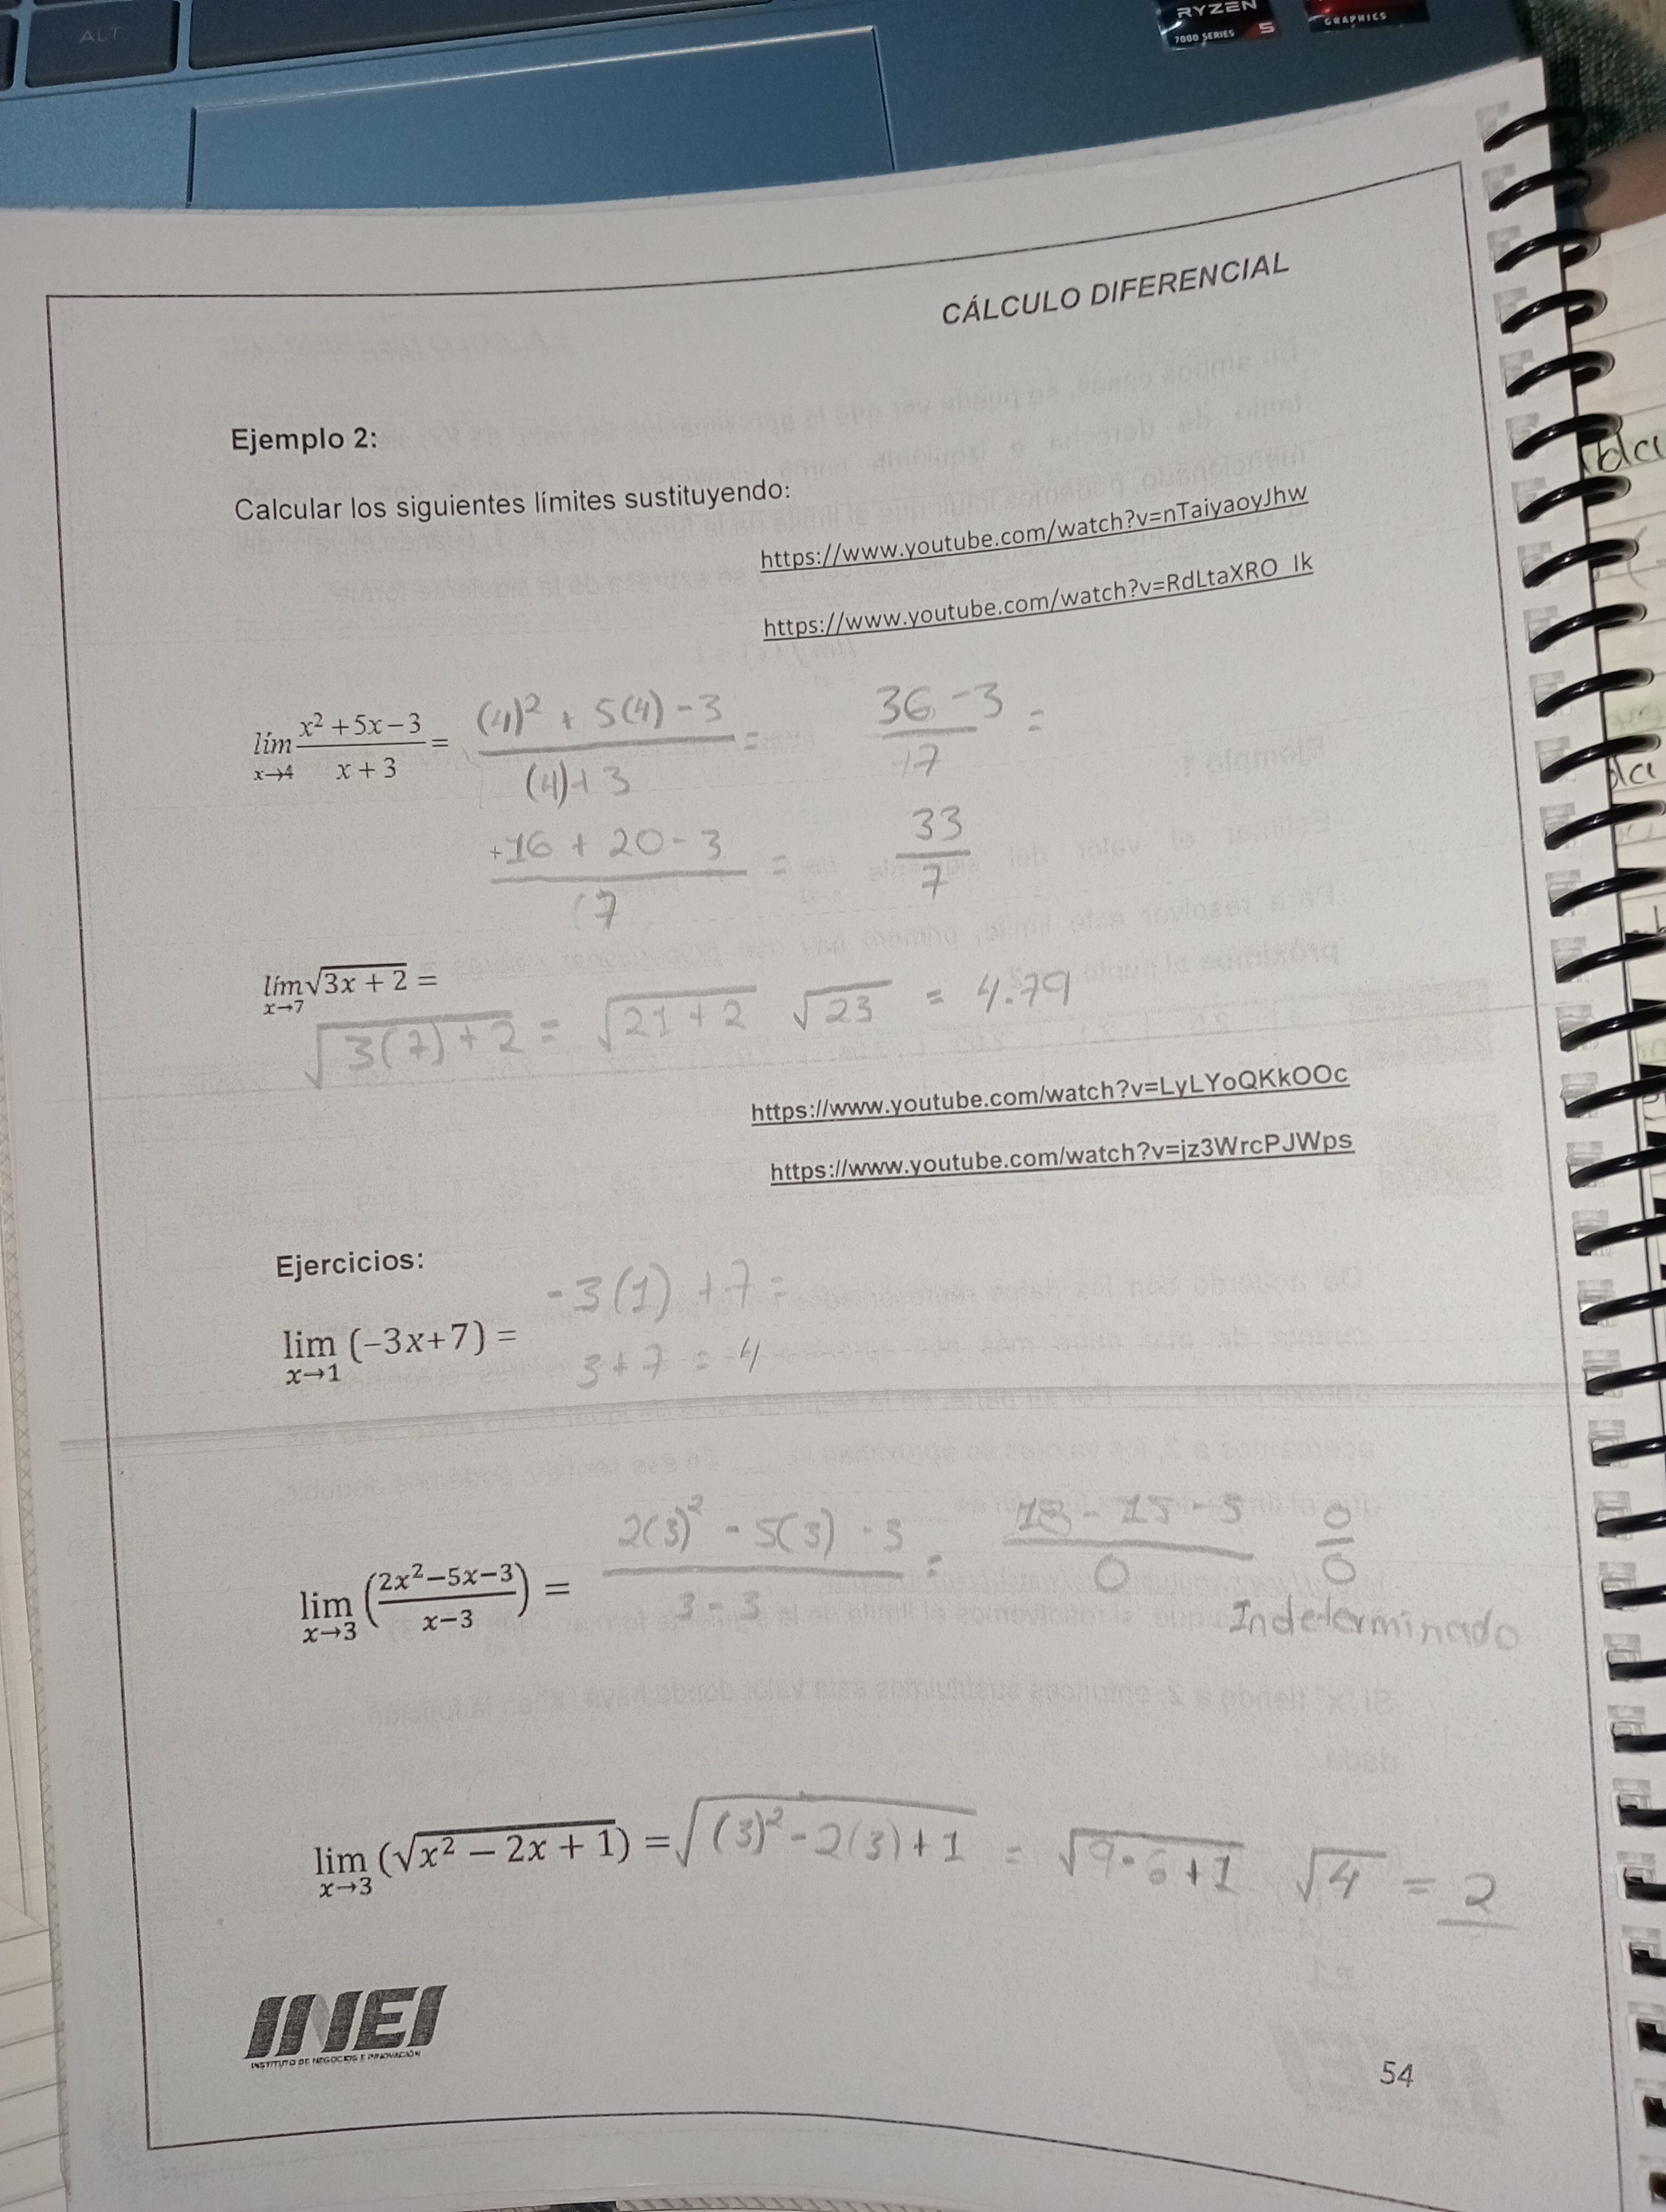 ALT
RYZEN
7000 SERIES 5
GRAPHICS
CÁLCULO DIFERENCIAL
Ejemplo 2:
Calcular los siguientes límites sustituyendo:
https://www.youtube.com/watch?v=nTaiyaoyJhw
https://www.youtube.com/watch?v=RdLtaXRO_Ik
lím x→4 (x² + 5x − 3)/(x + 3) = ((4)² + 5(4) − 3)/((4)+3) = (36 − 3)/7 =
(+16 + 20 − 3)/(7 = 33/7
lím x→7 √(3x + 2) =
√(3(7)+2) = √(21+2) √23 = 4.79
https://www.youtube.com/watch?v=LyLYoQKkOOc
https://www.youtube.com/watch?v=jz3WrcPJWps
Ejercicios:
-3(1) + 7 =
lim x→1 (−3x+7) =
3 + 7 = 4
lim x→3 ((2x²−5x−3)/(x−3)) = (2(3)² - 5(3) - 3)/(3 - 3) = (18 - 15 - 3)/0 0/0
Indeterminado
lim x→3 (√(x² − 2x + 1)) = √((3)² - 2(3) + 1) = √(9-6+1) √4 = 2
INEI
INSTITUTO DE NEGOCIOS E INNOVACIÓN
54